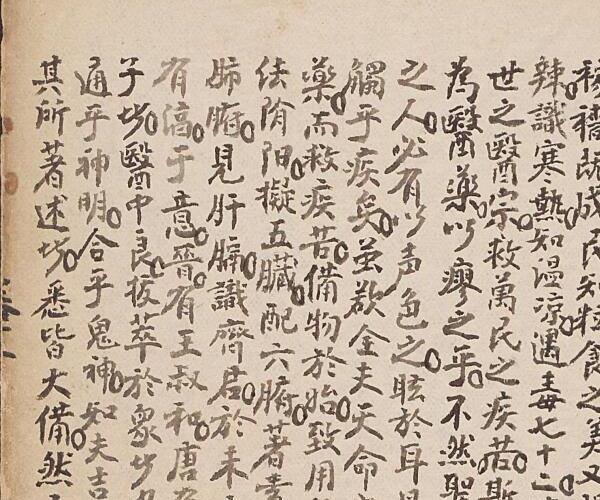 穡蔬成民知粒食之美又
辣識寒熱知温凉遇毒七十二
世之醫宗救萬民之疾苦斯
為醫藥以療之乎不然聖
之人必有以声色之眩於耳目
觸乎疾矣茲欲全夫天命
藥而救疾苦備物於始致用
法隂陽擬五臟配六腑著
肺腑見肝膈識齊君於未
有滈于意晉有王叔和唐
子皆醫中良拔萃於象皆
通乎神明合乎鬼神知夫吉
其所著述皆悉皆大備然